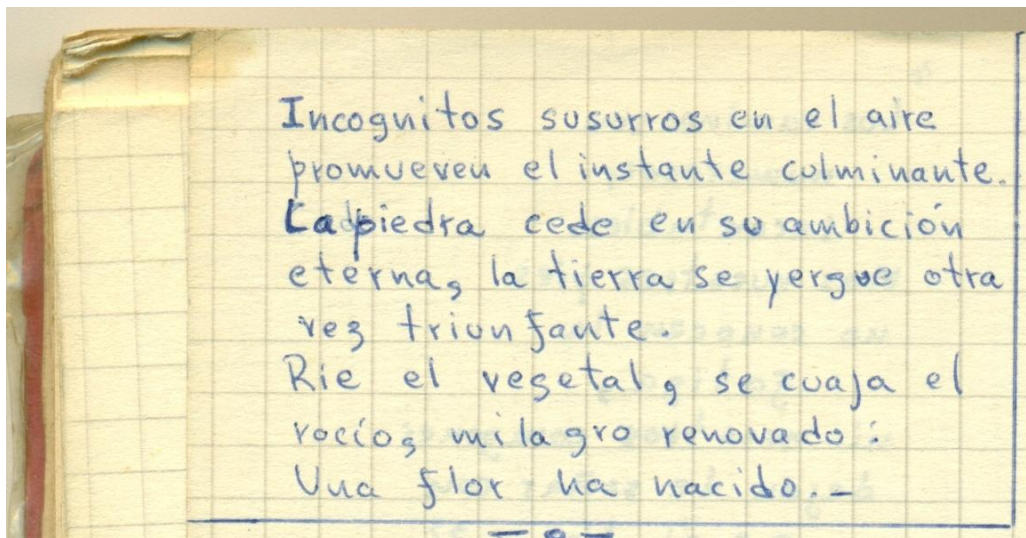 Incognitos susurros en el aire
promueven el instante culminante.
La piedra cede en su ambición
eterna, la tierra se yergue otra
vez triunfante.
Rie el vegetal, se cuaja el
rocío, milagro renovado:
Una flor ha nacido.-